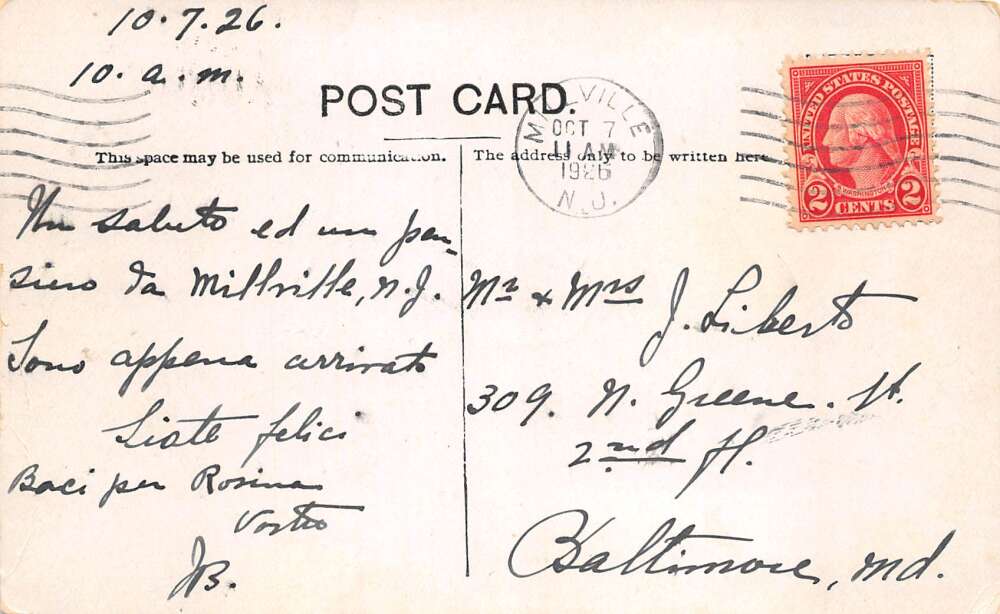 10.7.26.
10. a.m.
POST CARD.
MILLVILLE
OCT 7
11 AM
1926
N.J.
UNITED STATES POSTAGE
WASHINGTON
2 CENTS 2
This space may be used for communication.
The address only to be written here
Un saluto ed un pen-
siero da Millville, N.J.
Sono appena arrivato
Siate felici
Baci per Rosina
Vostro
JB.
Mr & Mrs
J. Liberto
309. N. Greene. St.
2nd fl.
Baltimore, Md.